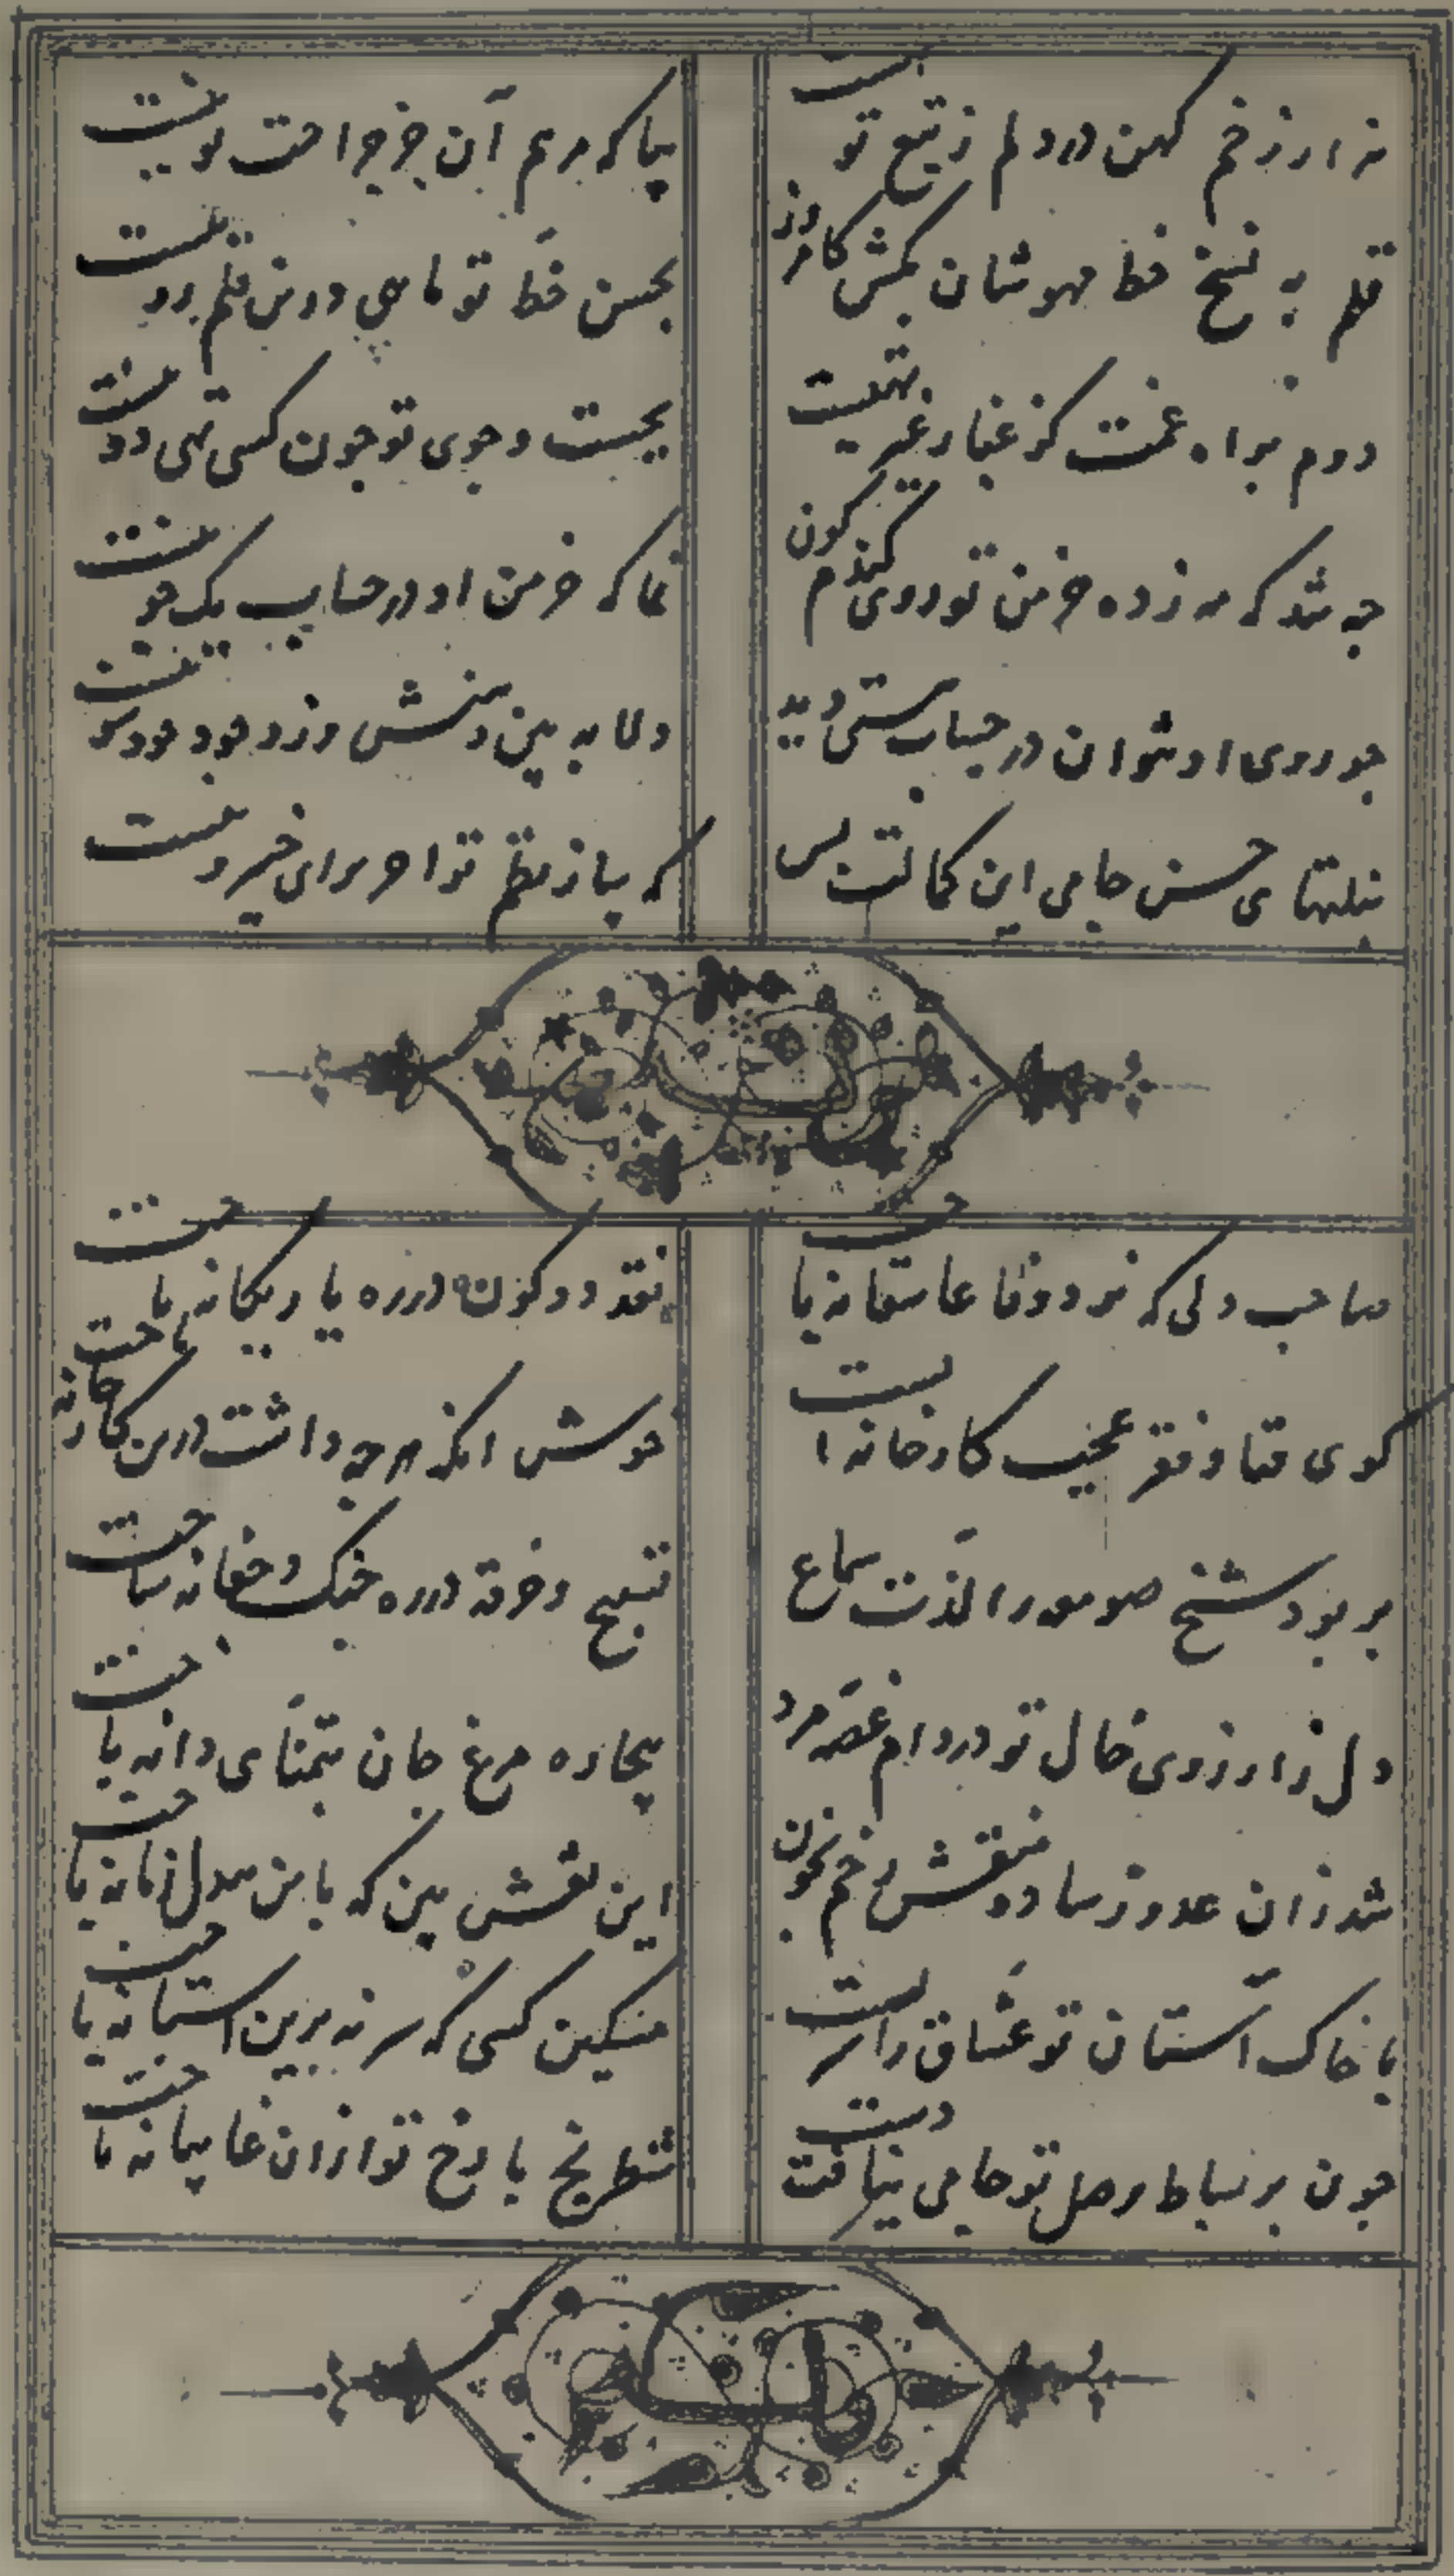 هزار زخم کهن در دلم ز تیغ تو هست
بیا که مرهم آن جز جراحت نو نیست
قلم به نسخ خط مهوشان بکش کامروز
بحسن خط تو ماهی درین قلمرو نیست
دوم براه غمت کز غبار غیر تهیست
بجست و جوی تو چون کسی تهی دو نیست
چه شد که مه زده خرمن تو روی گندم کون
نما که خرمن او در حساب یک جو نیست
چو روی او نتوان در حجاب هستی دید
دلا به بین رخش وز وجود خود شو نیست
نیاز نظم تو اجرای خسرو نیست
صاحب دلی که نرد وفا عاشقانه باخت
نقد دو کون در ره یار یکانه باخت
کوی فنا و فقر عجب کارخانه ایست
خوش انکه هرچه داشت درین کارخانه باخت
بربود شیخ صومعه را لذت سماع
تسبیح و خرقه در ره چنک و چغانه ساخت
دل زارزوی خال تو در دام غصه مرد
بیچاره مرغ جان بتمنای دانه باخت
شد زان عذار ساده منقش رخم بخون
این نقش بین که با من بیدل زمانه باخت
با خاک آستان تو عشاق را سریست
مسکین کسی که سر نه برین استانه باخت
چون بر بساط وصل تو جامی نیافت دست
شطرنج با رخ تو ازان غایبانه باخت